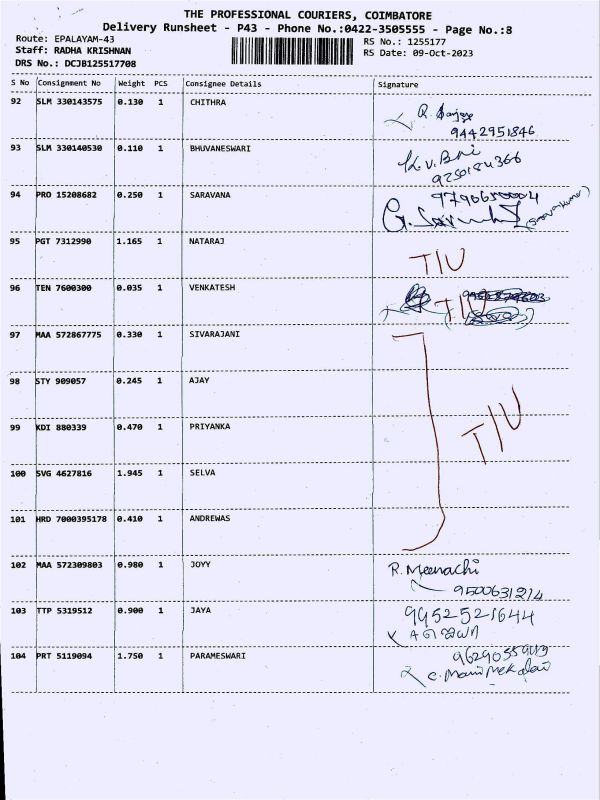 THE PROFESSIONAL COURIERS, COIMBATORE
Delivery Runsheet - P43 - Phone No.:0422-3505555 - Page No.:8
Route: EPALAYAM-43
Staff: RADHA KRISHNAN
DRS No.: DCJB125517708
RS No.: 1255177
RS Date: 09-Oct-2023
S No Consignment No Weight PCS Consignee Details Signature
92 SLM 330143575 0.130 1 CHITHRA
9442951846
93 SLM 330140530 0.110 1 BHUVANESWARI
94 PRO 15208682 0.250 1 SARAVANA
95 PGT 7312990 1.165 1 NATARAJ T/U
96 TEN 7600300 0.035 1 VENKATESH T/U
97 MAA 572867775 0.330 1 SIVARAJANI
98 STY 909057 0.245 1 AJAY
99 KDI 880339 0.470 1 PRIYANKA T/U
100 SVG 4627816 1.945 1 SELVA
101 HRD 7000395178 0.410 1 ANDREWAS
102 MAA 572309803 0.980 1 JOYY R. Meenachi
9500631214
103 TTP 5319512 0.900 1 JAYA 9952521644
104 PRT 5119094 1.750 1 PARAMESWARI